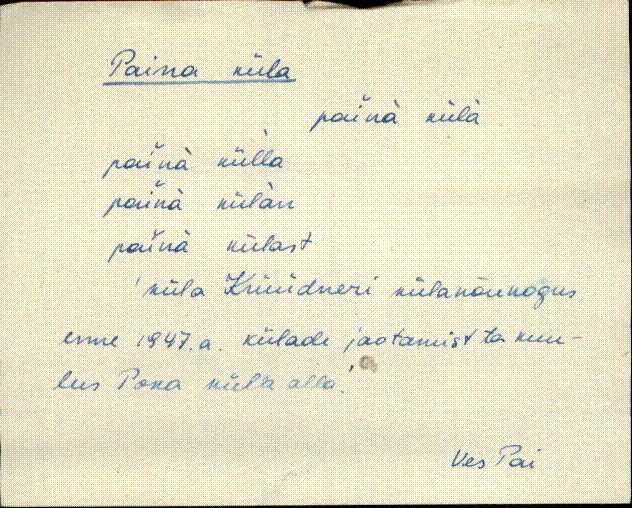 Paina küla
paĭnà külà
paĭnà külla
paĭnà külàn
paĭnà külast
'küla Krüüdneri külanõukogus
enne 1947.a. külade jaotamist ta kuu-
lus Poka küla alla.'
Ves Pai